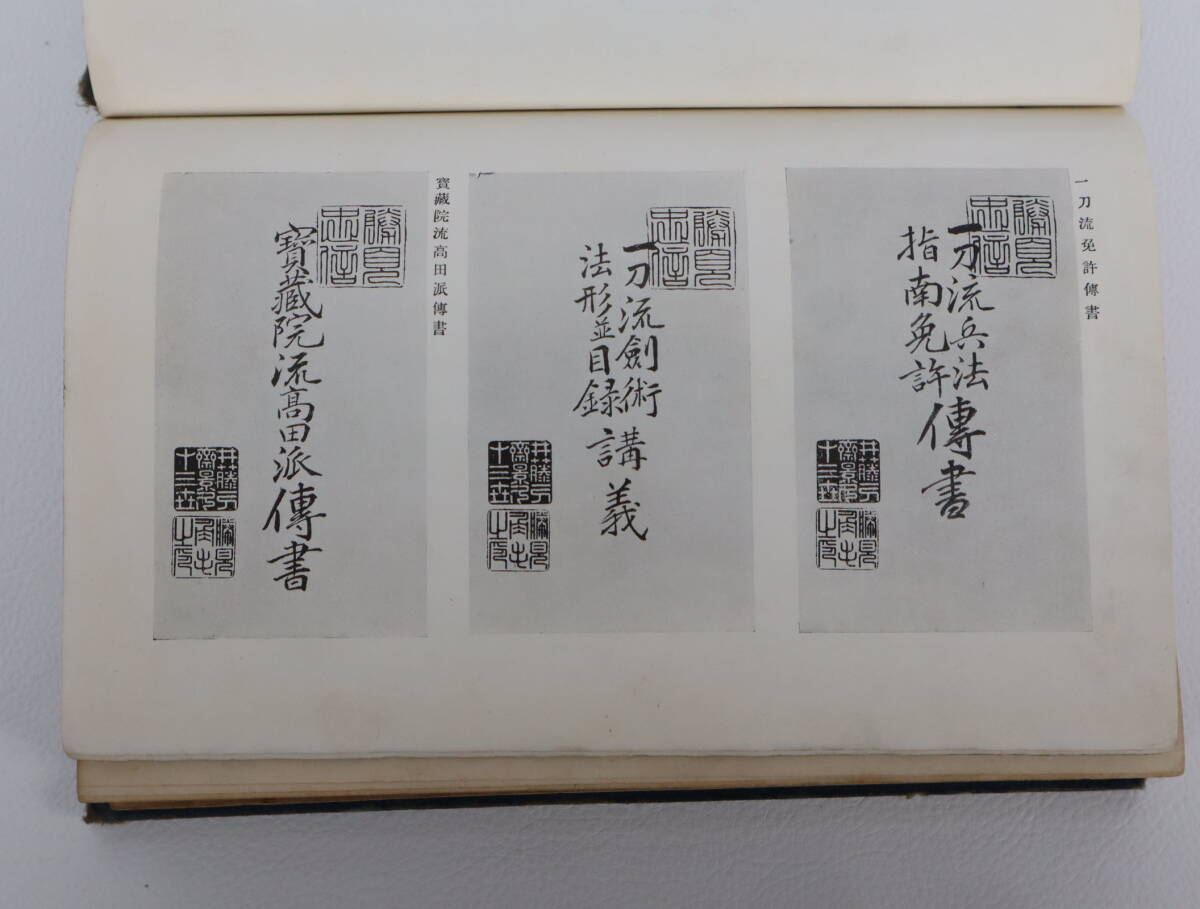 一刀流免許傳書
一刀流兵法
指南免許傳書
一刀流劍術
法形並目録講義
寶藏院流高田派傳書
寶藏院流高田派傳書